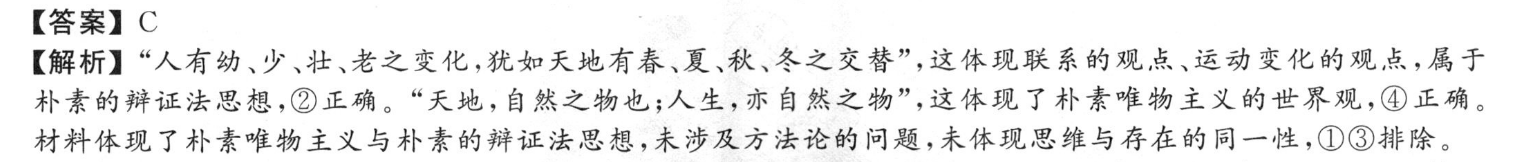 【答案】C
【解析】“人有幼、少、壮、老之变化,犹如天地有春、夏、秋、冬之交替”,这体现联系的观点、运动变化的观点,属于
朴素的辩证法思想,②正确。“天地,自然之物也;人生,亦自然之物”,这体现了朴素唯物主义的世界观,④正确。
材料体现了朴素唯物主义与朴素的辩证法思想,未涉及方法论的问题,未体现思维与存在的同一性,①③排除。